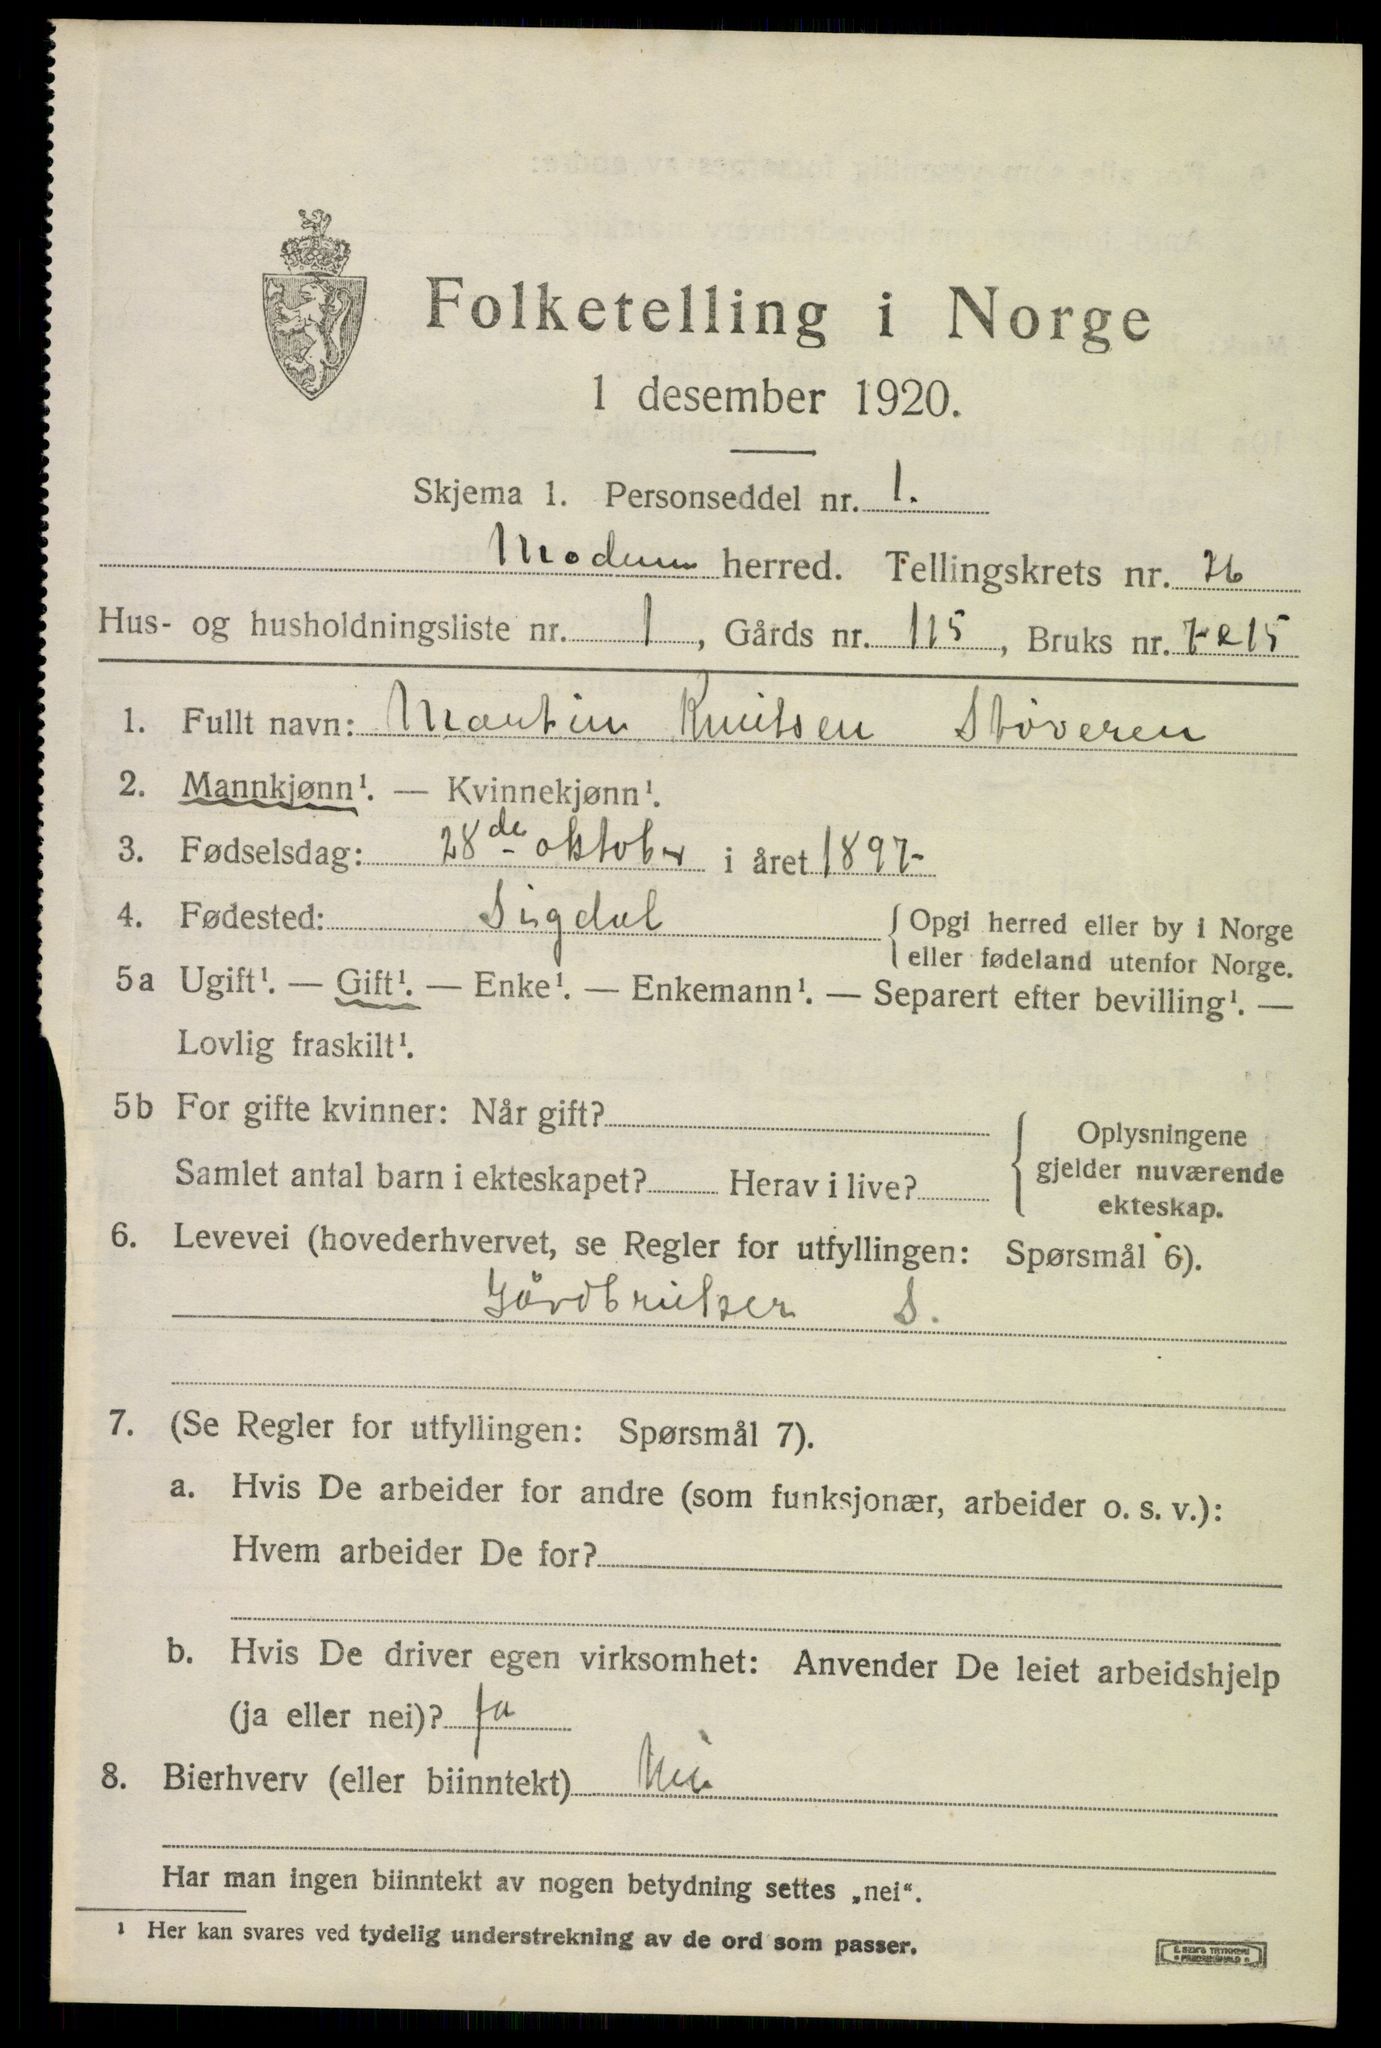 Folketelling i Norge
1 desember 1920.
Skjema 1. Personseddel nr. 1.
Modum herred. Tellingskrets nr. 26
Hus- og husholdningsliste nr. 1, Gårds nr. 115, Bruks nr. 7 & 15
1. Fullt navn: Martin Knutsen Støveren
2. Mannkjønn¹. — Kvinnekjønn¹.
3. Fødselsdag: 28de oktober i året 1897
4. Fødested: Sigdal { Opgi herred eller by i Norge
eller fødeland utenfor Norge.
5a Ugift¹. — Gift¹. — Enke¹. — Enkemann¹. — Separert efter bevilling¹. —
Lovlig fraskilt¹.
5b For gifte kvinner: Når gift? { Oplysningene
gjelder nuværende
Samlet antal barn i ekteskapet? Herav i live?
ekteskap.
6. Levevei (hovederhvervet, se Regler for utfyllingen: Spørsmål 6).
Gårdbruker S.
7. (Se Regler for utfyllingen: Spørsmål 7).
a. Hvis De arbeider for andre (som funksjonær, arbeider o. s. v.):
Hvem arbeider De for?
b. Hvis De driver egen virksomhet: Anvender De leiet arbeidshjelp
(ja eller nei)? ja
8. Bierhverv (eller biinntekt) Nei
Har man ingen biinntekt av nogen betydning settes „nei“.
¹ Her kan svares ved tydelig understrekning av de ord som passer.